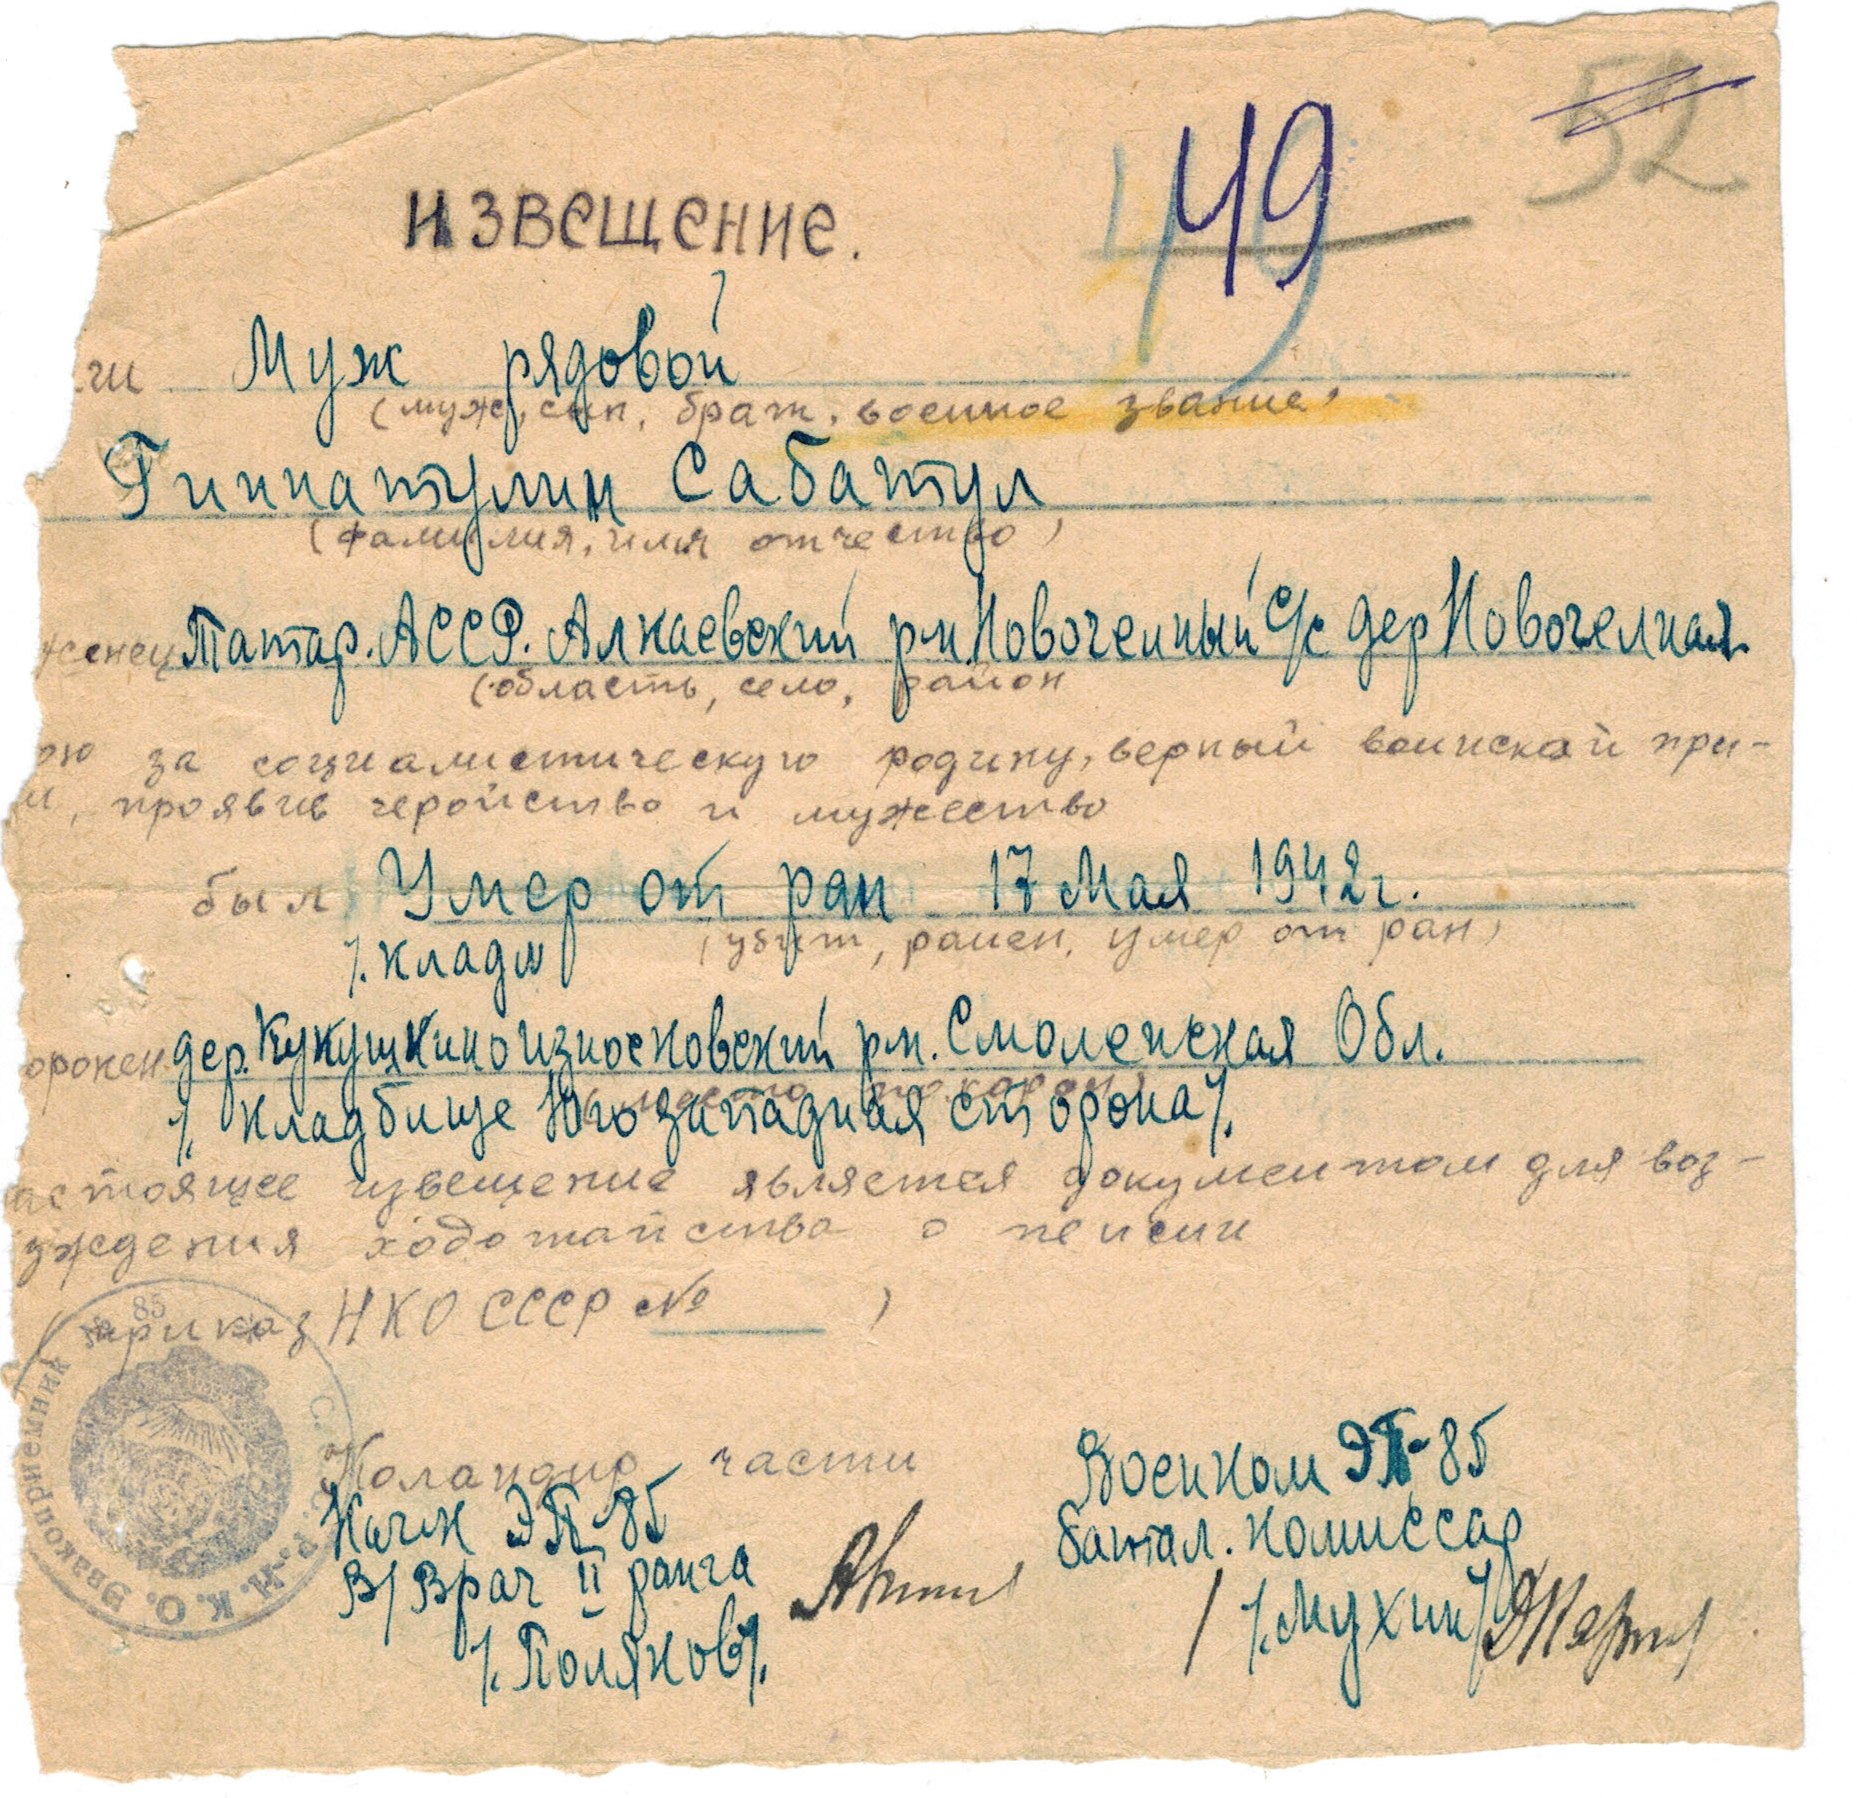 52
49
извещение.
ги Муж рядовой
(муж, сын, брат, военное звание)
Гиннатулин Сабатул
(фамилия, имя отчество)
женец Татар. АССР. Алкаевский р-н. Новочелный С/с дер Новочелная
(область, село, район
ою за социалистическую родину, верный воинской при-
и, проявив геройство и мужество
был Умер от ран 17 Мая 1942 г.
(убит, ранен, умер от ран)
/. клады
оронен дер. Кукушкино износковский р-н. Смоленская Обл.
/. кладбище Юго западная сторона /.
астоящее извещение является документом для воз-
уждения ходотайства о пенсии
(приказ НКО СССР №     )
Командир части
Нач-к ЭП-85
В/Врач II ранга
/. Поляков /.
Военком ЭП-85
батал. комиссар
/. Мухин /
Эвакоприемник № 85 С.С.С.Р.-Н.К.О.